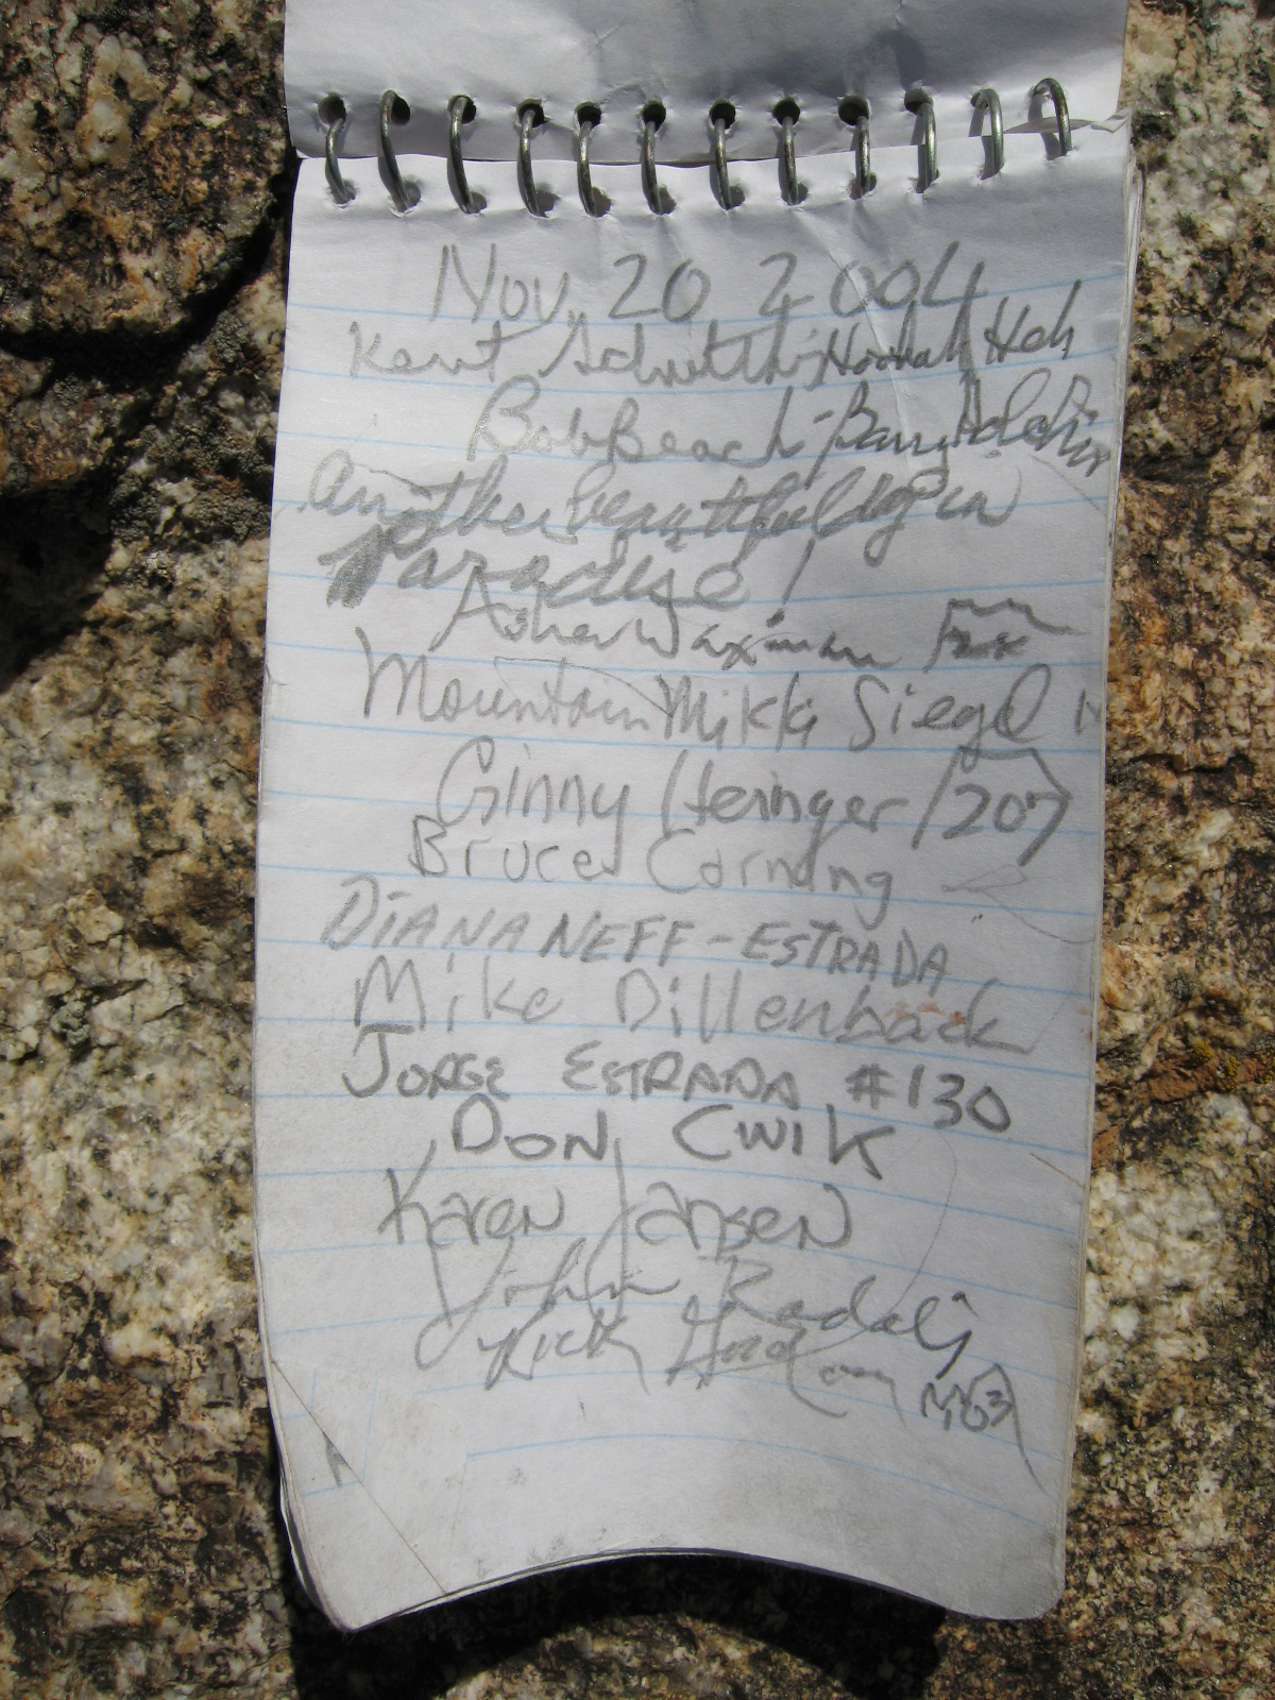 Nov. 20 2004
Kent Heh
Bob Beach - Barry
Another beautiful day in
Paradise!
Asher Waxman
Mountain Mikki Siegel
Ginny Heringer 207
Bruce Corning
DIANA NEFF-ESTRADA
Mike Dillenback
JORGE ESTRADA #130
DON CWIK
Karen Jansen
John Radalj
Rick